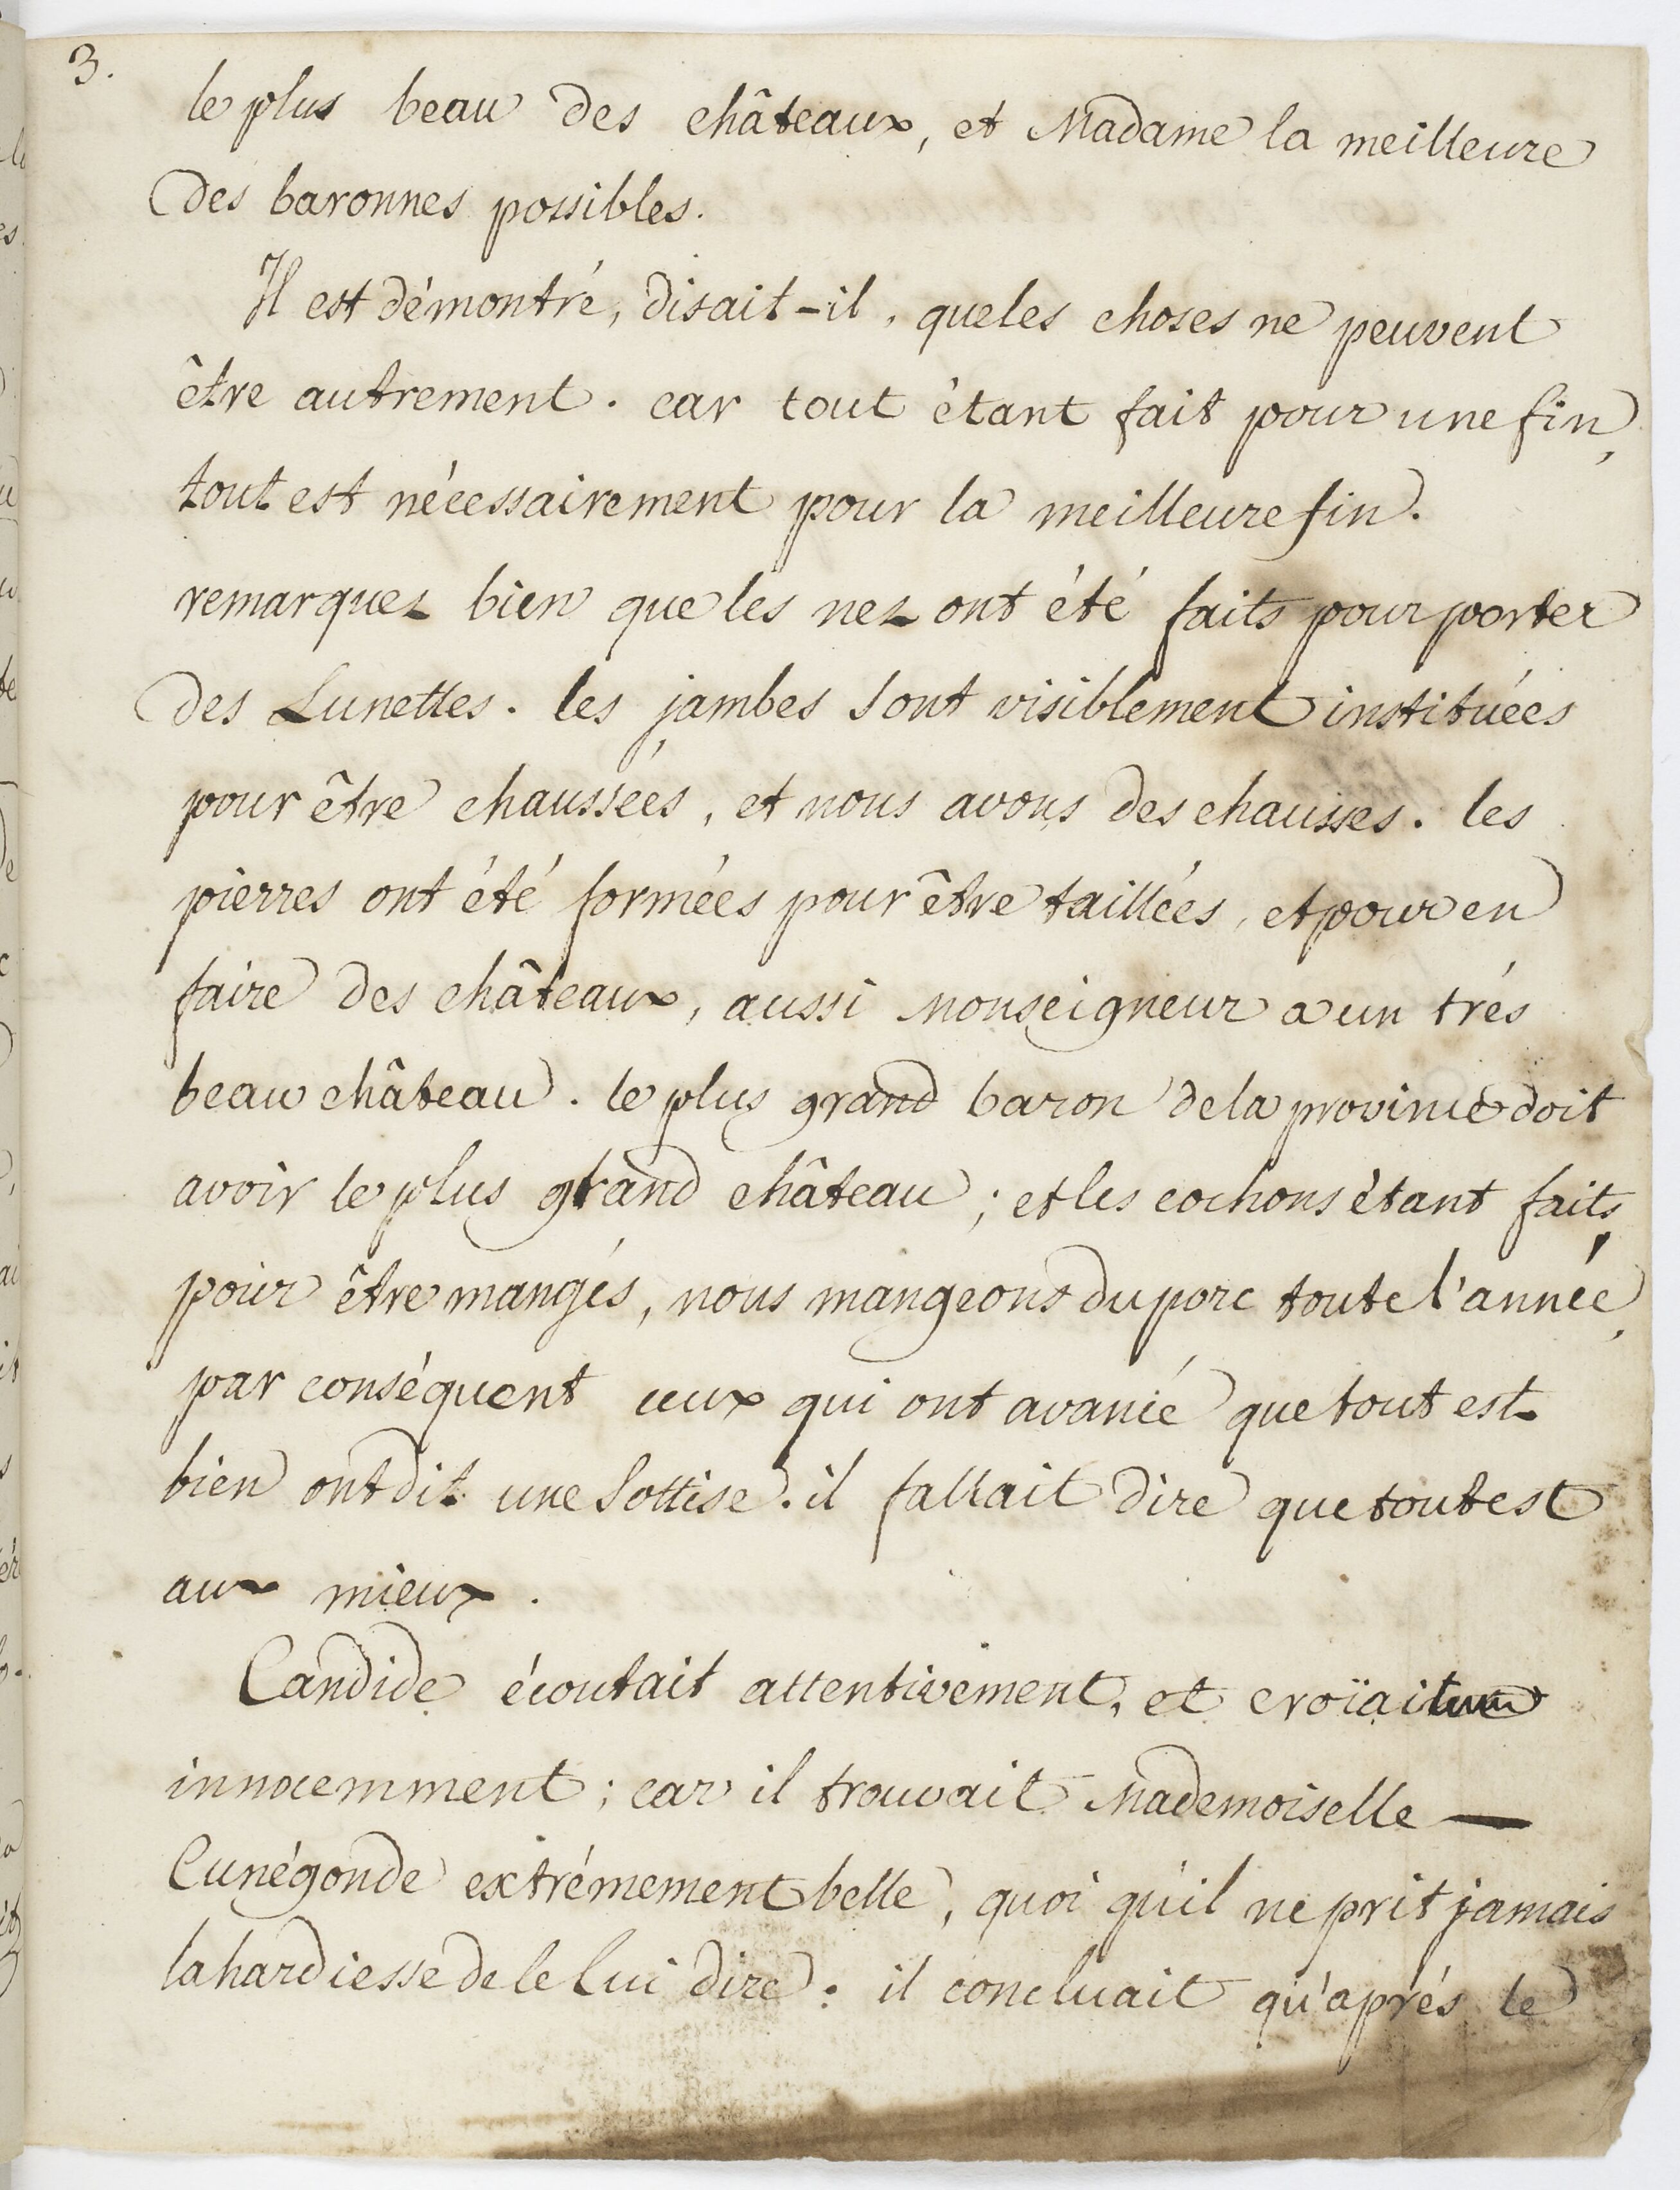 3.
le plus beau des châteaux, et Madame la meilleure
des baronnes possibles.
Il est démontré, disait-il, que les choses ne peuvent
être autrement. car tout étant fait pour une fin,
tout est nécessairement pour la meilleure fin.
remarquez bien que les nez ont été faits pour porter
des Lunettes. les jambes sont visiblement instituées
pour être chaussées, et nous avons des chausses. les
pierres ont été formées pour être taillées, et pour en
faire des châteaux, aussi Monseigneur a un trés
beau château. le plus grand baron de la province doit
avoir le plus grand château; et les cochons étant faits
pour être mangés, nous mangeons du porc toute l'année,
par conséquent ceux qui ont avancé que tout est
bien ont dit une sottise. il fallait dire que tout est
aux mieux.
Candide écoutait attentivement, et croïait
innocemment; car il trouvait Mademoiselle —
Cunégonde extrémement belle, quoi qu'il ne prit jamais
la hardiesse de le lui dire: il concluait qu'aprés le